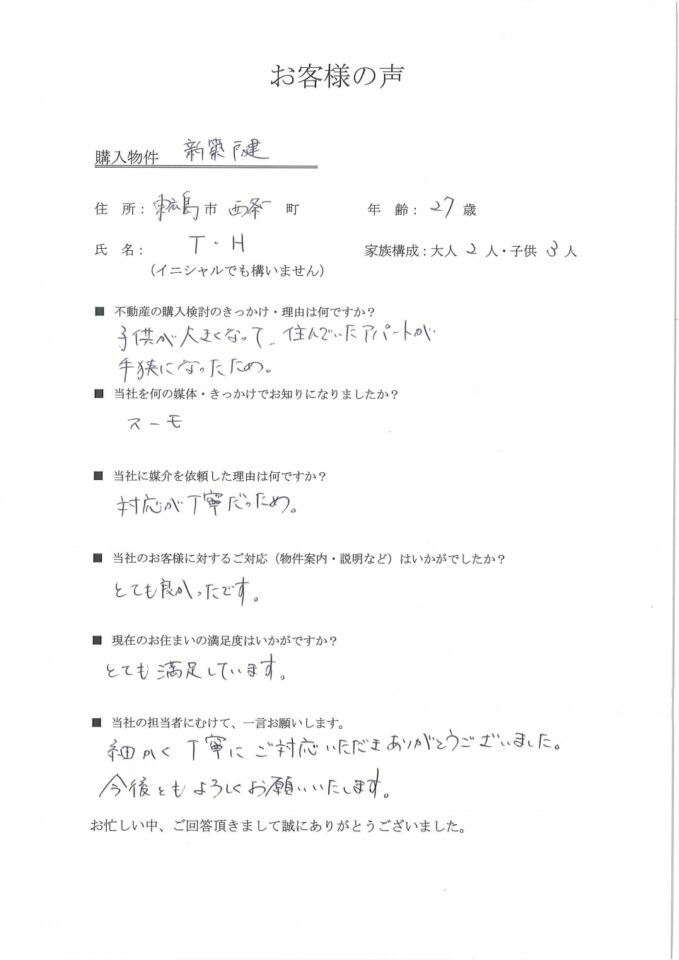 お客様の声
購入物件 新築戸建
住 所: 東広島市 西条 町 年 齢: 27 歳
氏 名: T・H 家族構成:大人 2 人・子供 3 人
(イニシャルでも構いません)
■ 不動産の購入検討のきっかけ・理由は何ですか?
子供が大きくなって、住んでいたアパートが
手狭になったため。
■ 当社を何の媒体・きっかけでお知りになりましたか?
スーモ
■ 当社に媒介を依頼した理由は何ですか?
対応が丁寧だっため。
■ 当社のお客様に対するご対応(物件案内・説明など)はいかがでしたか?
とても良かったです。
■ 現在のお住まいの満足度はいかがですか?
とても満足しています。
■ 当社の担当者にむけて、一言お願いします。
細かく丁寧にご対応いただきありがとうございました。
今後ともよろしくお願いいたします。
お忙しい中、ご回答頂きまして誠にありがとうございました。